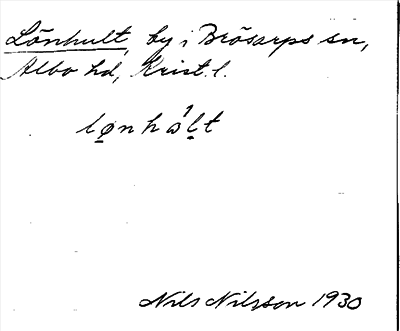 Lönhult, by i Brösarps sn,
Albo hd, Krist. l.
lønhål̯t
Nils Nilsson 1930